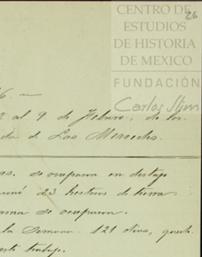 CENTRO DE
ESTUDIOS
DE HISTORIA
DE MEXICO
FUNDACIÓN
Carlos Slim
26
6. -
2 al 9 de Febrero, de los
da de Las Mercedes.
as. se ocuparon en destajo
23 hectras de tierra
se ocuparon
la semana 121 otros, quedó
este trabajo.